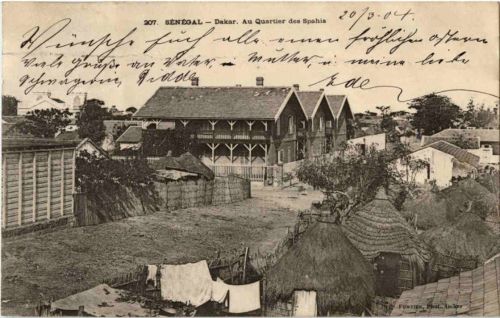 207. SÉNÉGAL — Dakar. Au Quartier des Spahis
20/3. 04.
Wünsche Euch allen einen fröhlichen Ostern
Viele Grüße an Vater u Mutter u meine liebe
Schwägerin
FORTIER, Phot. Dakar